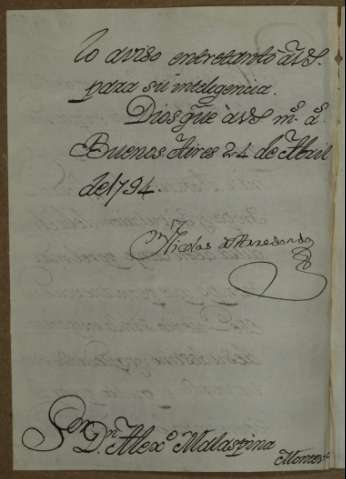 lo aviso entretanto à V.S.
para su inteligencia.
Dios gũe à V.S. m.s a.s
Buenos Aires 24 de Abril
de 1794.
Nicolas de Arredondo
Sor. Dn. Alex.o Malaspina
Montev.o